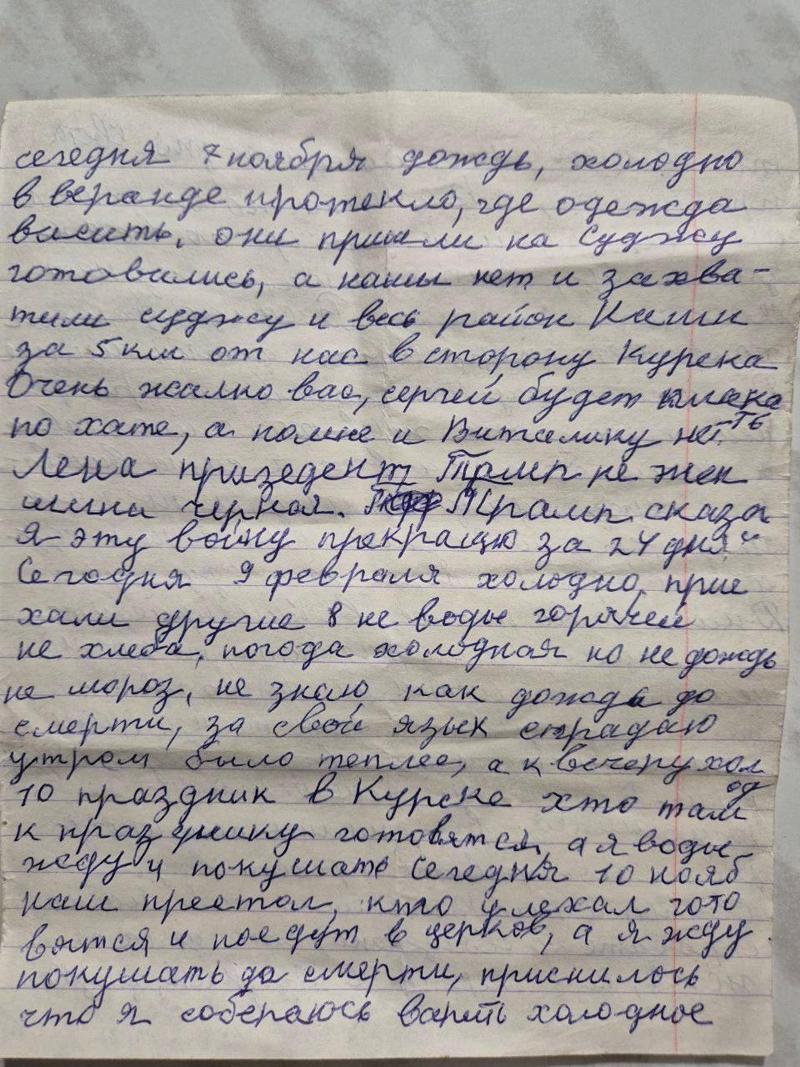 сегодня 7 ноября дождь, холодно
в веранде протекло, где одежда
висить, они пришли на Суджу
готовились, а нашы нет и захва-
тили суджу и весь район Наши
за 5 км от нас в сторону Курска
Очень жалко вас, сергей будет плака
по хате, а помне и Виталику нет. ть
Лена призедент Трамп не жен
щина черная. Трамп сказа
Я эту войну прекращю за 24 дня"
Сегодня 9 февраля холодно, прие
хали другие 8 не воды горячей
не хлеба, погода холодная но не дождь
не мороз, не знаю как дождь до
смерти, за свой язык страдаю
утром было теплее, а к вечеру хол
од
10 праздник в Курске хто там
к празднику готовятся, а я воды
жду и покушать Сегодня 10 нояб
наш престол, кто уехал гото
вятся и поедут в церков, а я жду
покушать до смерти, приснилось
что я собераюсь варить холодное